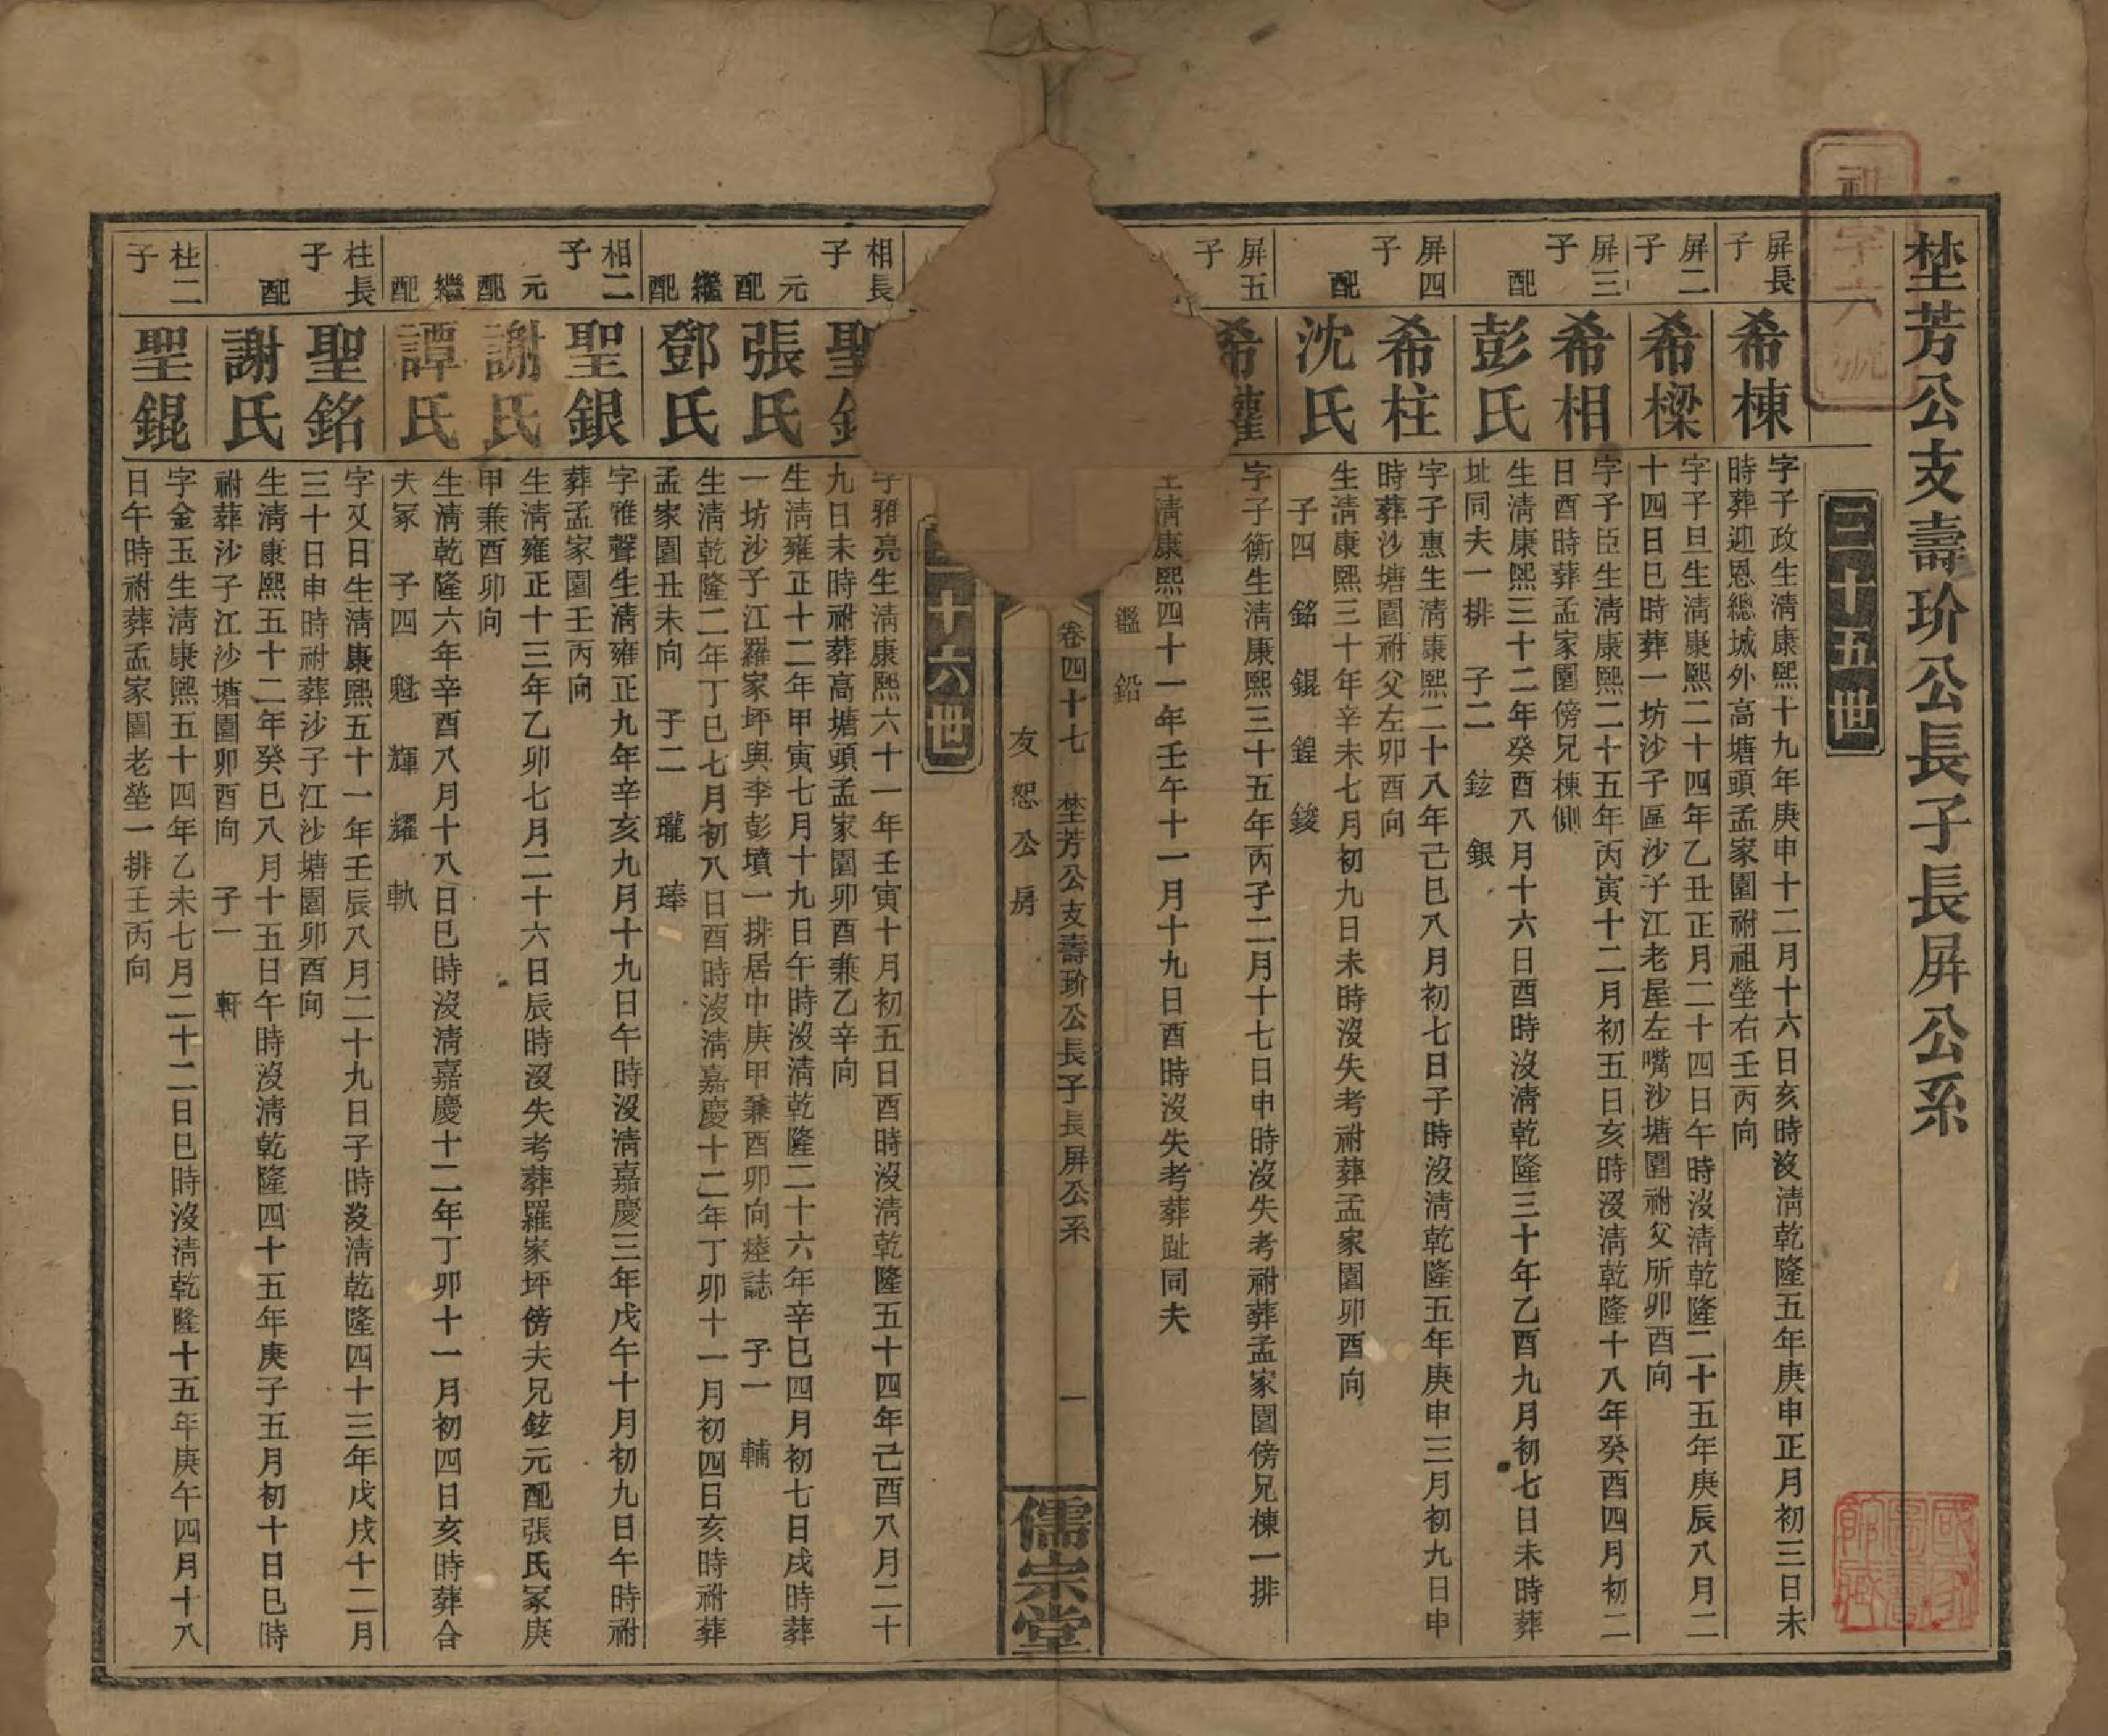 埜芳公支壽玠公長子長屏公系
三十五世
屏長子
希棟
字子政生淸康熙十九年庚申十二月十六日亥時沒淸乾隆五年庚申正月初三日未
時葬迎恩總城外高塘頭孟家園祔祖塋右壬丙向
屏二子
希樑
字子旦生淸康熙二十四年乙丑正月二十四日午時沒淸乾隆二十五年庚辰八月二
十四日巳時葬一坊沙子區沙子江老屋左嘴沙塘園祔父所卯酉向
屏三子
希相
字子臣生淸康熙二十五年丙寅十二月初五日亥時沒淸乾隆十八年癸酉四月初二
日酉時葬孟家園傍兄棟側
配
彭氏
生淸康熙三十二年癸酉八月十六日酉時沒淸乾隆三十年乙酉九月初七日未時葬
址同夫一排 子二 鉉 銀
屏四子
希柱
字子惠生淸康熙二十八年己巳八月初七日子時沒淸乾隆五年庚申三月初九日申
時葬沙塘園祔父左卯酉向
配
沈氏
生淸康熙三十年辛未七月初九日未時沒失考祔葬孟家園卯酉向
子四 銘 錕 鍠 鋑
屏五子
希權
字子衡生淸康熙三十五年丙子二月十七日申時沒失考祔葬孟家園傍兄棟一排
生淸康熙四十一年壬午十一月十九日酉時沒失考葬趾同夫
鑑 鉛
卷四十七 埜芳公支壽玠公長子長屏公系 一
友恕公房
儒宗堂
十六世
相長子
聖
字雅亮生淸康熙六十一年壬寅十月初五日酉時沒淸乾隆五十四年己酉八月二十
九日未時祔葬高塘頭孟家園卯酉兼乙辛向
元配
張氏
生淸雍正十二年甲寅七月十九日午時沒淸乾隆二十六年辛巳四月初七日戌時葬
一坊沙子江羅家坪與李彭墳一排居中庚甲兼酉卯向瘞誌 子一 輔
繼配
鄧氏
生淸乾隆二年丁巳七月初八日酉時沒淸嘉慶十二年丁卯十一月初四日亥時祔葬
孟家園丑未向 子二 瓏 琫
相二子
聖銀
字雅聲生淸雍正九年辛亥九月十九日午時沒淸嘉慶三年戊午十月初九日午時祔
葬孟家園壬丙向
元配
謝氏
生淸雍正十三年乙卯七月二十六日辰時沒失考葬羅家坪傍夫兄鉉元配張氏冢庚
甲兼酉卯向
繼配
譚氏
生淸乾隆六年辛酉八月十八日巳時沒淸嘉慶十二年丁卯十一月初四日亥時葬合
夫冢 子四 魁 輝 耀 軌
柱長子
聖銘
字又日生淸康熙五十一年壬辰八月二十九日子時沒淸乾隆四十三年戊戌十二月
三十日申時祔葬沙子江沙塘園卯酉向
配
謝氏
生淸康熙五十二年癸巳八月十五日午時沒淸乾隆四十五年庚子五月初十日巳時
祔葬沙子江沙塘園卯酉向 子一 軒
柱二子
聖錕
字金玉生淸康熙五十四年乙未七月二十二日巳時沒淸乾隆十五年庚午四月十八
日午時祔葬孟家園老塋一排壬丙向